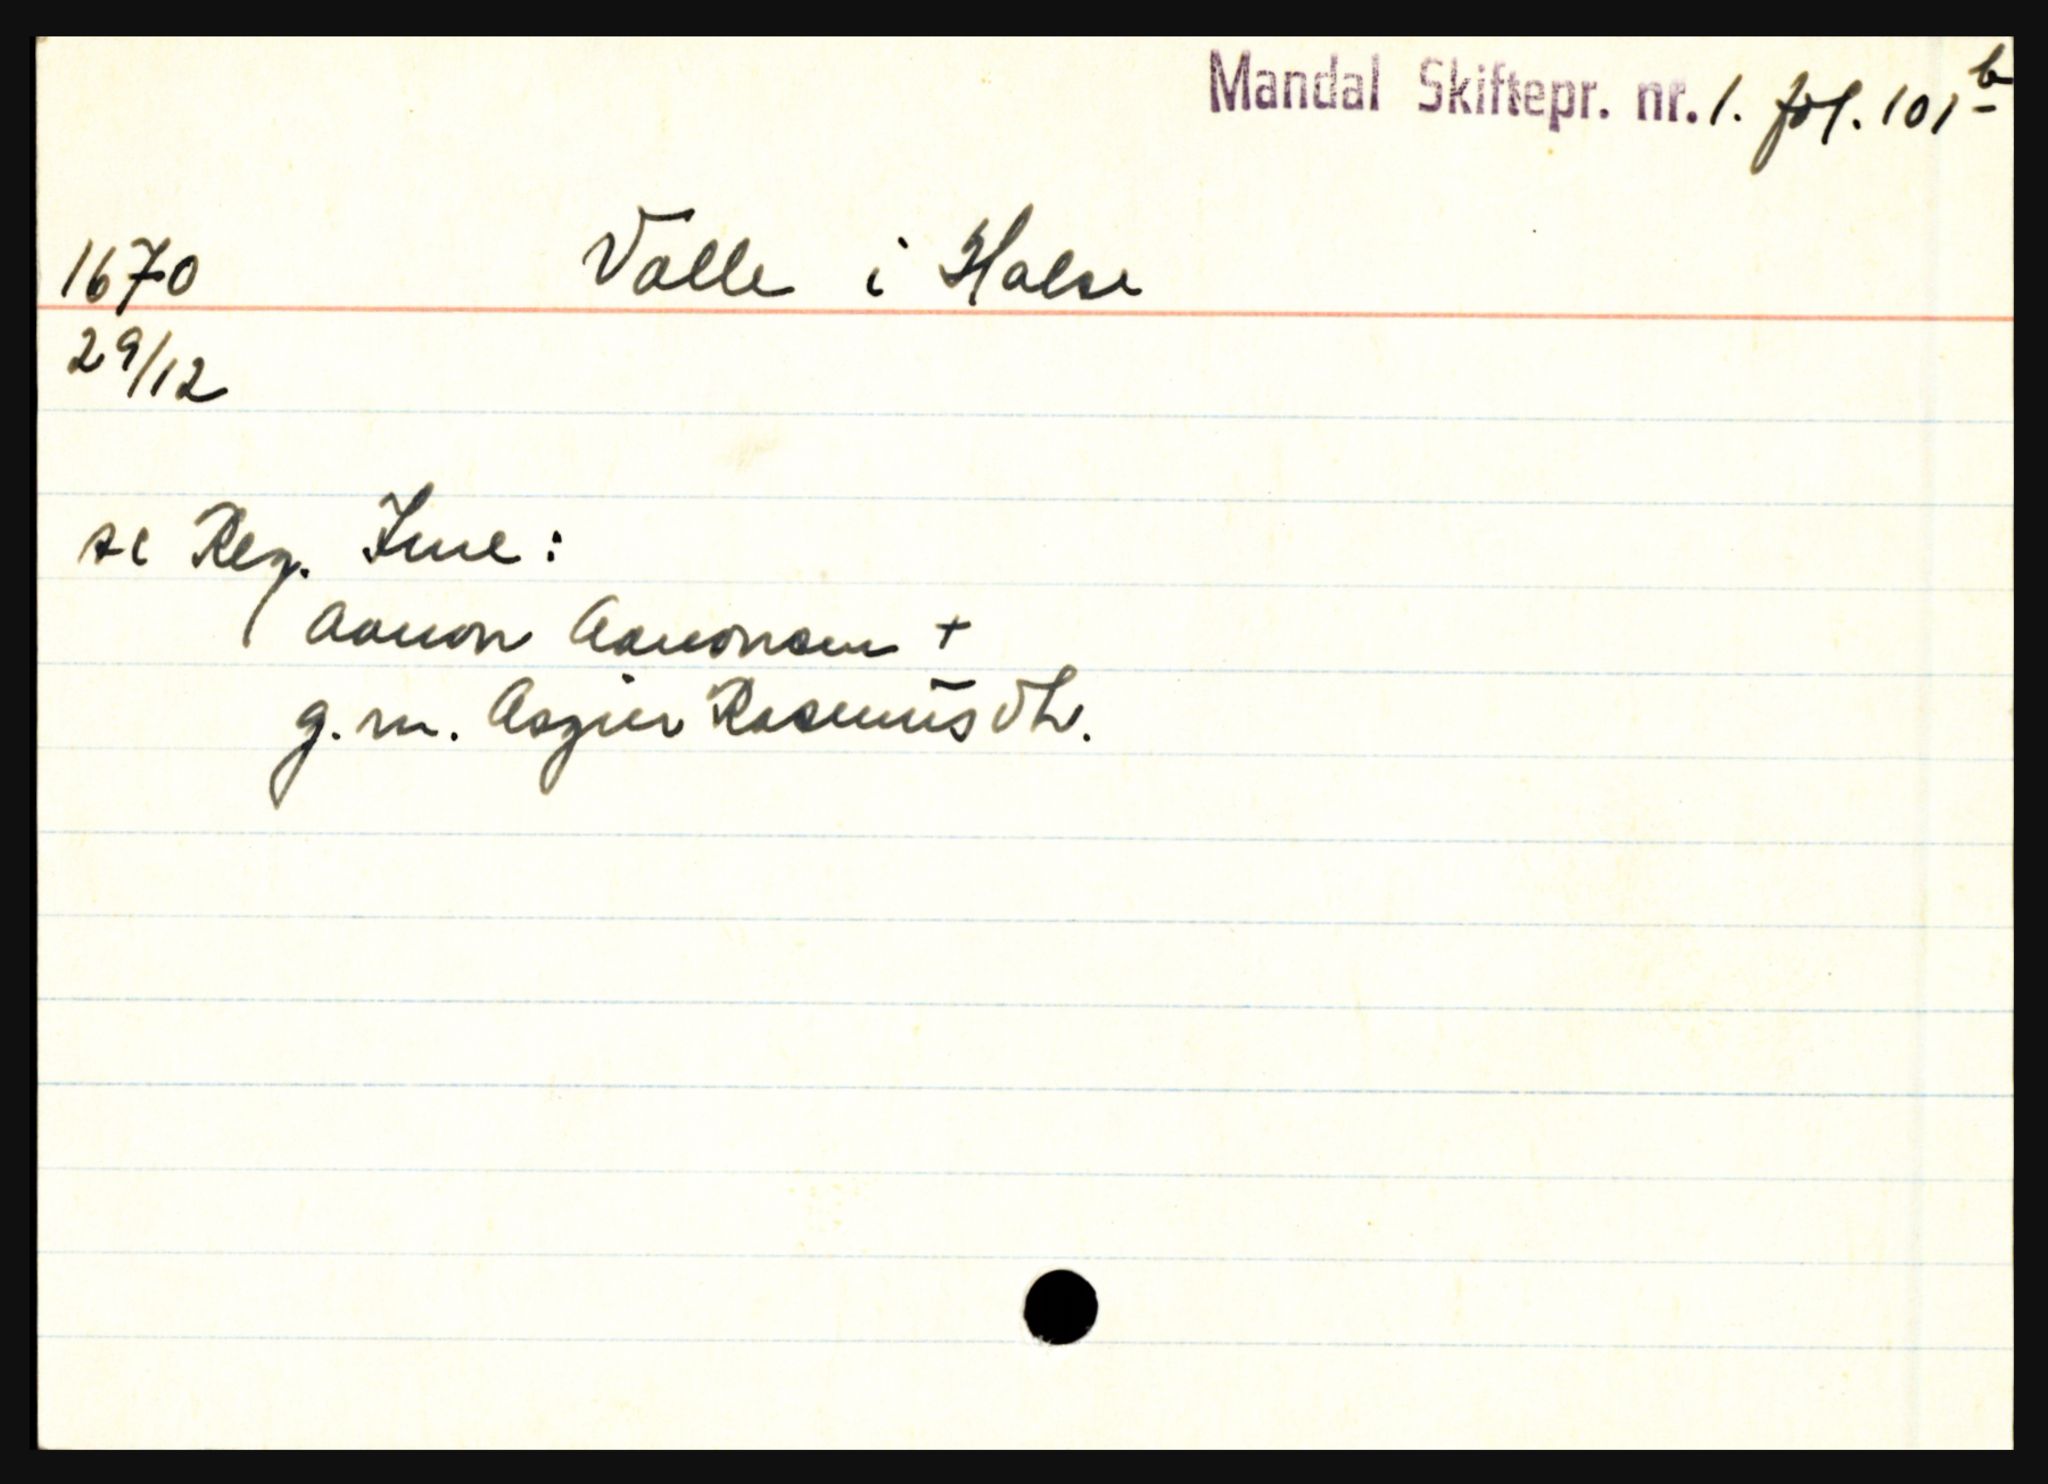 Mandal Skiftepr. nr. 1. fol. 101 b
1670 Valle i Halse
29/12
se Reg. Ime:
Aanon Aanonsen +
g. m. Asgier Rasmusdtr.